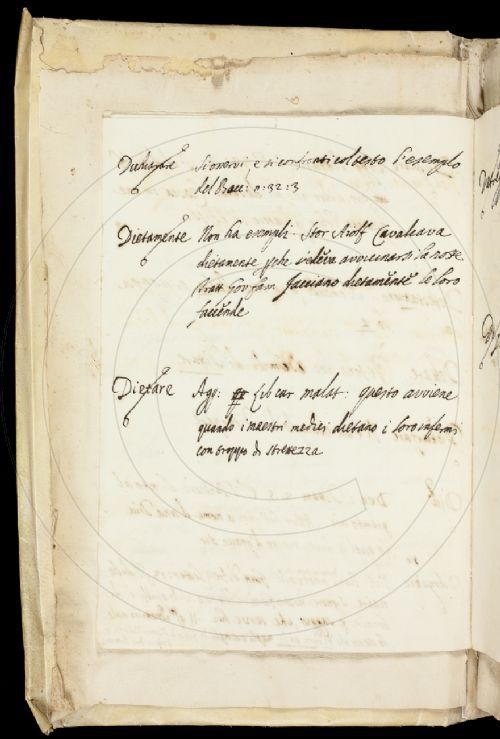 Dichiarare Si osservi, e si confronti col testo l'esempio
del Bocc: n: 32: 3
Dietamente Non ha esempli. Stor Aiolf Cavalcava
dietamente pche vedeva avvicinarsi la notte
Tratt Gov fam facciano dietamēte le loro
faccēde
Dietare Agg: Lib cur malat: questo avviene
quando i maestri medici dietano i loro infermi
con troppo di strettezza